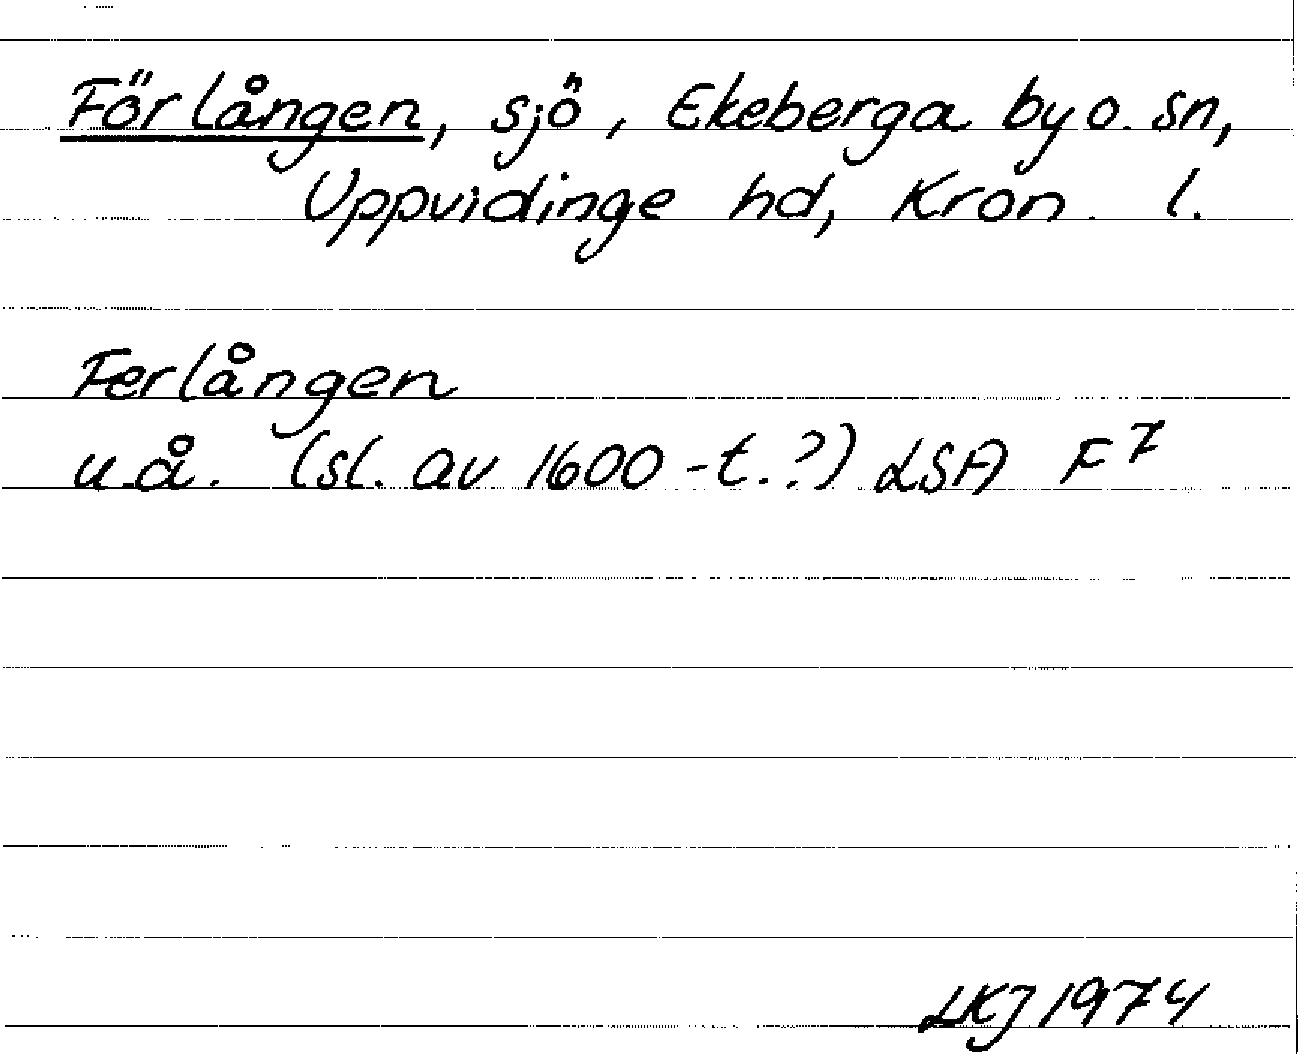 Förlången, sjö, Ekeberga by o. sn,
Uppvidinge hd, Kron. l.
Ferlången
u.å. (sl. av 1600-t.?) LSA F7
LKJ 1974